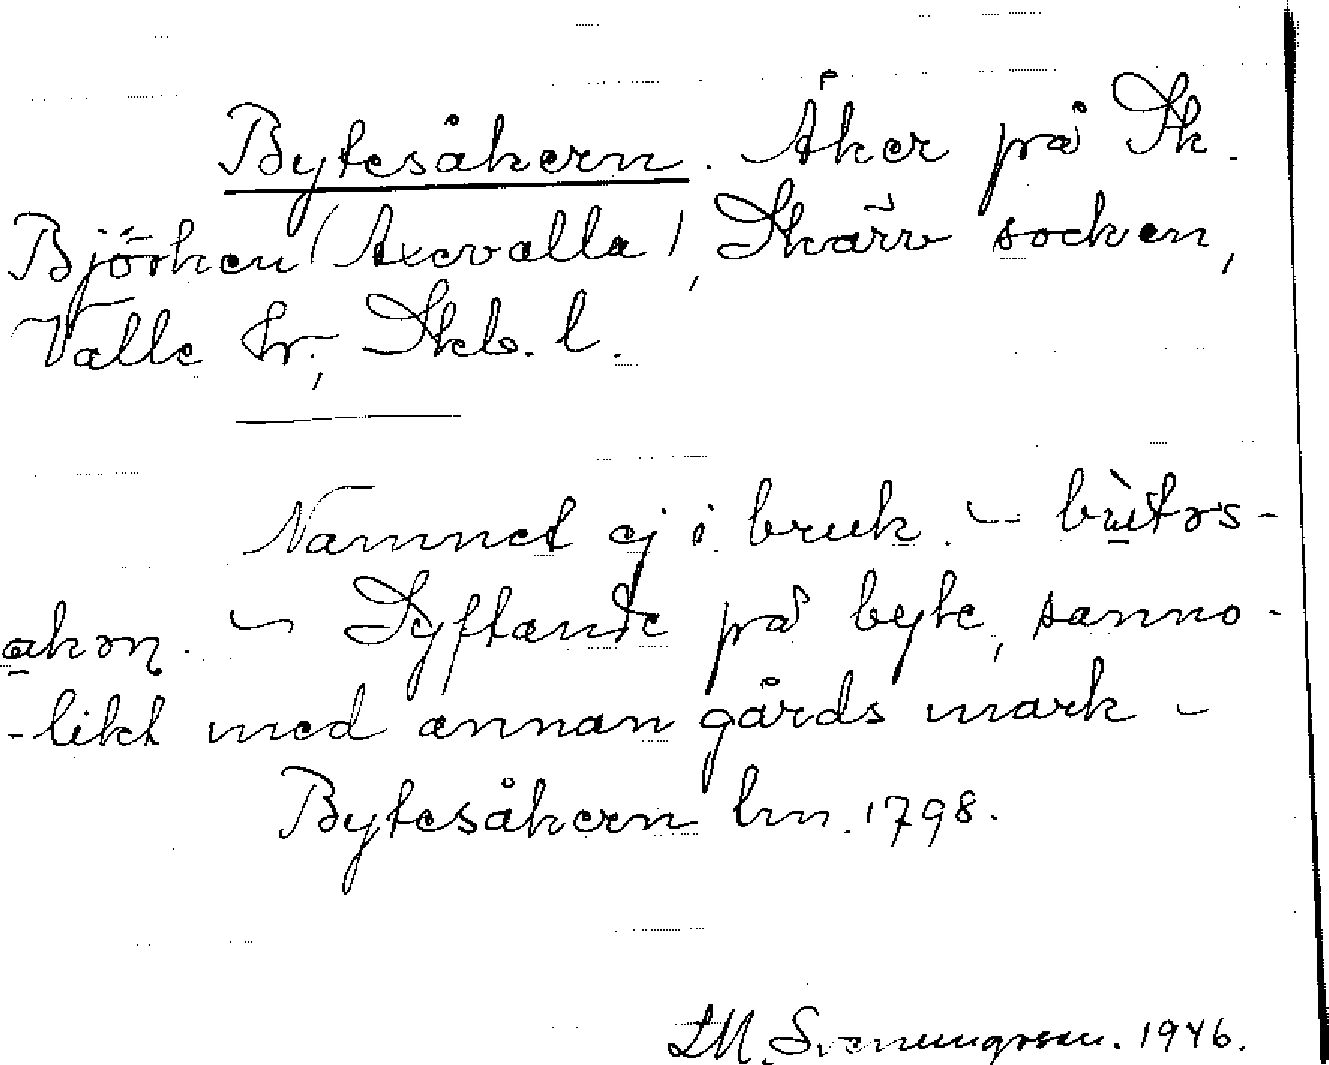 Bytesåkern. Åker på Sk.
Björken (Axevalla), Skärv socken,
Valle hr, Skb. l.
Namnet ej i bruk. – bùtəs-
akən. – Syftande på byte, sanno-
-likt med annan gårds mark –
Bytesåkern lm. 1798.
LM. Svenungsson. 1946.